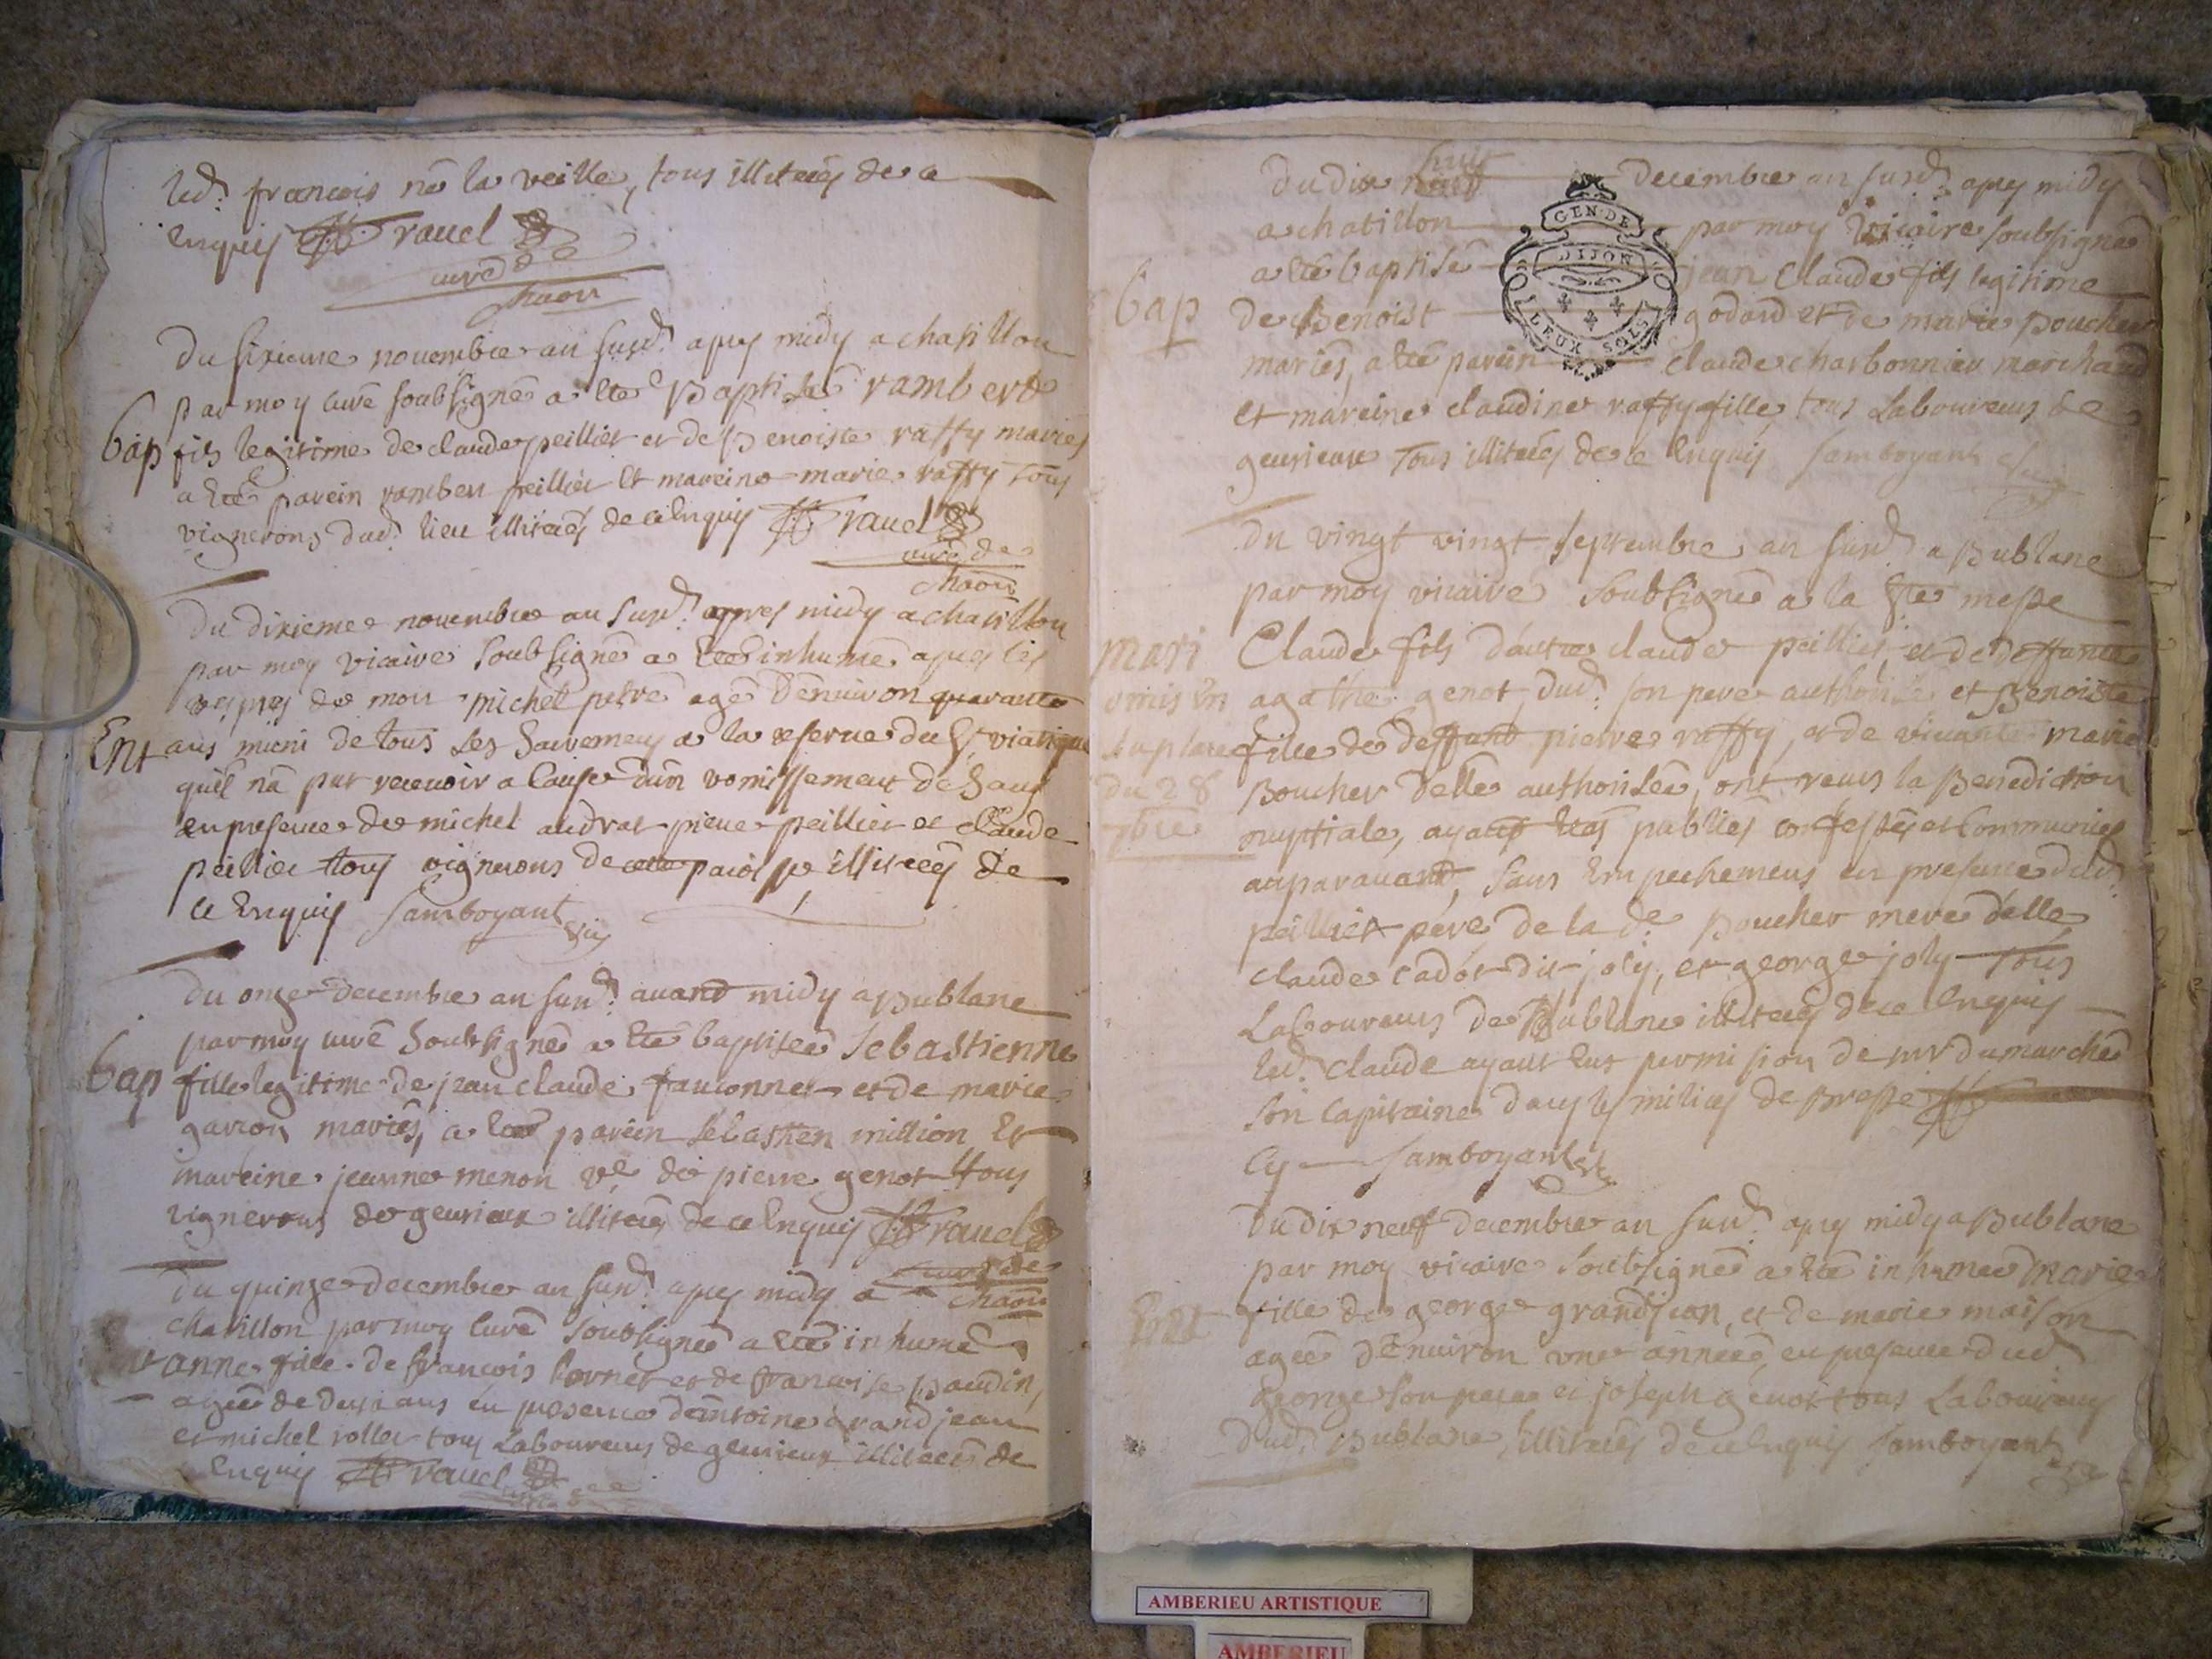 led. francois né la veille, tous illiterés de ce
enquis ravel
curé de
chaon
Du sixieme novembre an susd. apres midy a chatillon
par moy curé soubsigné a esté Baptisé rambert
Bap fils legitime de claude peillier et de Benoiste raffy mariés
a esté parein rambert peillier et mareine marie raffy tous
vignerons dud. lieu illiterés de ce enquis ravel
curé de
chaon
Du dixieme novembre an susd. apres midy a chatillon
par moy vicaire soubsigné a esté inhumé apres les
vespres de mort michel petre agé d'environ quarante
Ent ans muni de tous les sacremens a la reserve du st viatique
qu'il n'a put recevoir a cause d'un vomissement de sang
en presence de michel andras pierre peillier et claude
peillier tous vignerons de cette paroisse illiterés de
ce enquis Jamboyant vic
du onze decembre an susd. avant midy a Bublane
par moy curé soubsigné a esté baptisée sebastienne
Bap fille legitime de jean claude fauconnet et de marie
garron mariés, a esté parein sebastien million et
mareine jeanne menon ve de pierre genot tous
vignerons de gevrieux illiterés de ce enquis ravel
curé de
chaon
Du quinze decembre an susd. apres midy a
chatillon par moy curé soubsigné a esté inhumé
anne fille de francois bornet et de francoise baudin,
agée de deux ans en presence d'antoine grandjean
et michel rollet tous laboureurs de gevrieux illiterés de
enquis ravel
Du dix huit decembre an susd. apres midy
a chatillon par moy vicaire soubsigné
a esté baptisé jean claude fils legitime
Bap de Benoist godard et de marie Boucher
GEN·DE
DIJON
DEUX SOLS
mariés, a esté parein claude charbonnier marchand
et mareine claudine raffy fille, tous laboureurs de
gevrieux tous illiterés de ce enquis Jamboyant vic
Du vingt vingt septembre an susd. a Bublane
par moy vicaire soubsigné a la ste messe
mari Claude fils d'autre claude peillier, et de deffunte
omis en agathe genot, dud. son pere authorisé et Benoiste
sa place fille de deffunt pierre raffy, et de vivante marie
du 28 Boucher d'elle authorisée, ont receus la Benediction
7bre nuptiale, ayant estés publiés confessés et communiés
auparavant, sans empechemens en presence dud.
peillier pere de la de Boucher mere d'elle
claude cadot dit joly, et george joly tous
Laboureurs de Bublane illiterés de ce enquis
led. claude ayant eus permision de mr dumarché
son capitaine dans les milices de Bresse
Cy Jamboyant vic
Du dix neuf decembre an susd. apres midy a Bublane
par moy vicaire soubsigné a esté inhumée marie
Ent fille de george grandjean, et de marie maison
agée d'environ une année, en presence dud.
george son pere et joseph genot tous Laboureurs
dud. Bublane, illiterés de ce enquis Jamboyant
AMBERIEU ARTISTIQUE
AMBERIEU